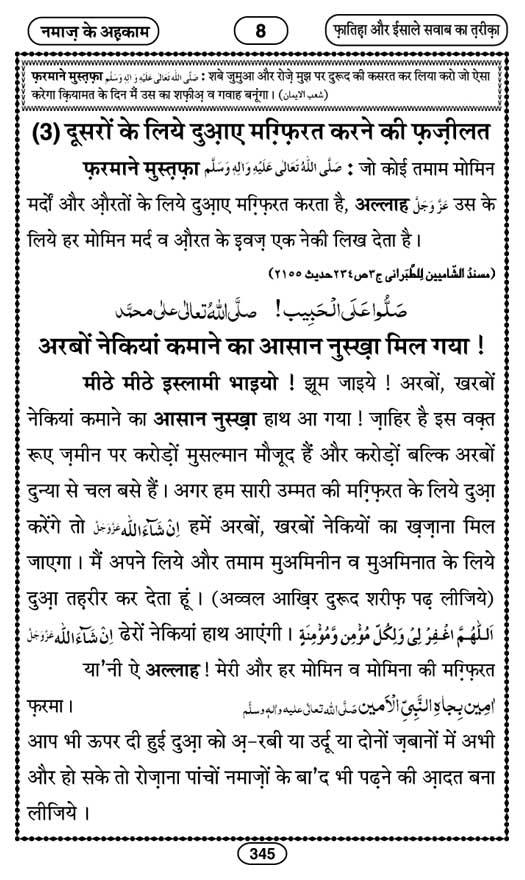 नमाज़ के अहकाम
8
फ़ातिह़ा और ईसाले सवाब का त़रीक़ा
फ़रमाने मुस्त़फ़ा صَلَّى اللهُ تَعَالٰى عَلَيْهِ وَاٰلِهٖ وَسَلَّم : शबे जुमुआ और रोज़े मुझ पर दुरूद की कसरत कर लिया करो जो ऐसा
करेगा क़ियामत के दिन मैं उस का शफ़ीअ़ व गवाह बनूंगा । (شعب الایمان)
(3) दूसरों के लिये दुआ़ए मग़्फ़िरत करने की फ़ज़ीलत
फ़रमाने मुस्त़फ़ा صَلَّى اللهُ تَعَالٰى عَلَيْهِ وَاٰلِهٖ وَسَلَّم : जो कोई तमाम मोमिन
मर्दों और औ़रतों के लिये दुआ़ए मग़्फ़िरत करता है, अल्लाह عَزَّوَجَلَّ उस के
लिये हर मोमिन मर्द व औ़रत के इ़वज़ एक नेकी लिख देता है ।
(مسندُ الشّامیین لِلطَّبَرانی ج۳ص۲۳٤حدیث ۲۱٥٥)
صَلُّوا عَلَى الْحَبِيب! صلَّى اللهُ تعالٰى علٰى محمَّد
अरबों नेकियां कमाने का आसान नुस्ख़ा मिल गया !
मीठे मीठे इस्लामी भाइयो ! झूम जाइये ! अरबों, खरबों
नेकियां कमाने का आसान नुस्ख़ा हाथ आ गया ! ज़ाहिर है इस वक़्त
रूए ज़मीन पर करोड़ों मुसल्मान मौजूद हैं और करोड़ों बल्कि अरबों
दुन्या से चल बसे हैं । अगर हम सारी उम्मत की मग़्फ़िरत के लिये दुआ़
करेंगे तो اِنْ شَآءَاللّٰه عَزَّوَجَلَّ हमें अरबों, खरबों नेकियों का ख़ज़ाना मिल
जाएगा । मैं अपने लिये और तमाम मुअमिनीन व मुअमिनात के लिये
दुआ़ तह़रीर कर देता हूं । (अव्वल आख़िर दुरूद शरीफ़ पढ़ लीजिये)
اَللّٰهُمَّ اغْفِرْ لِىْ وَلِكُلِّ مُؤْمِنٍ وَّمُؤْمِنَةٍ ढेरों नेकियां हाथ आएंगी । اِنْ شَآءَاللّٰه عَزَّوَجَلَّ
या'नी ऐ अल्लाह ! मेरी और हर मोमिन व मोमिना की मग़्फ़िरत
फ़रमा । اٰمين بِجاهِ النَّبِىِّ الْاَمين صلَّى الله تعالٰى عليه واٰلهٖ وسلَّم
आप भी ऊपर दी हुई दुआ़ को अ़-रबी या उर्दू या दोनों ज़बानों में अभी
और हो सके तो रोज़ाना पांचों नमाज़ों के बा'द भी पढ़ने की आ़दत बना
लीजिये ।
345